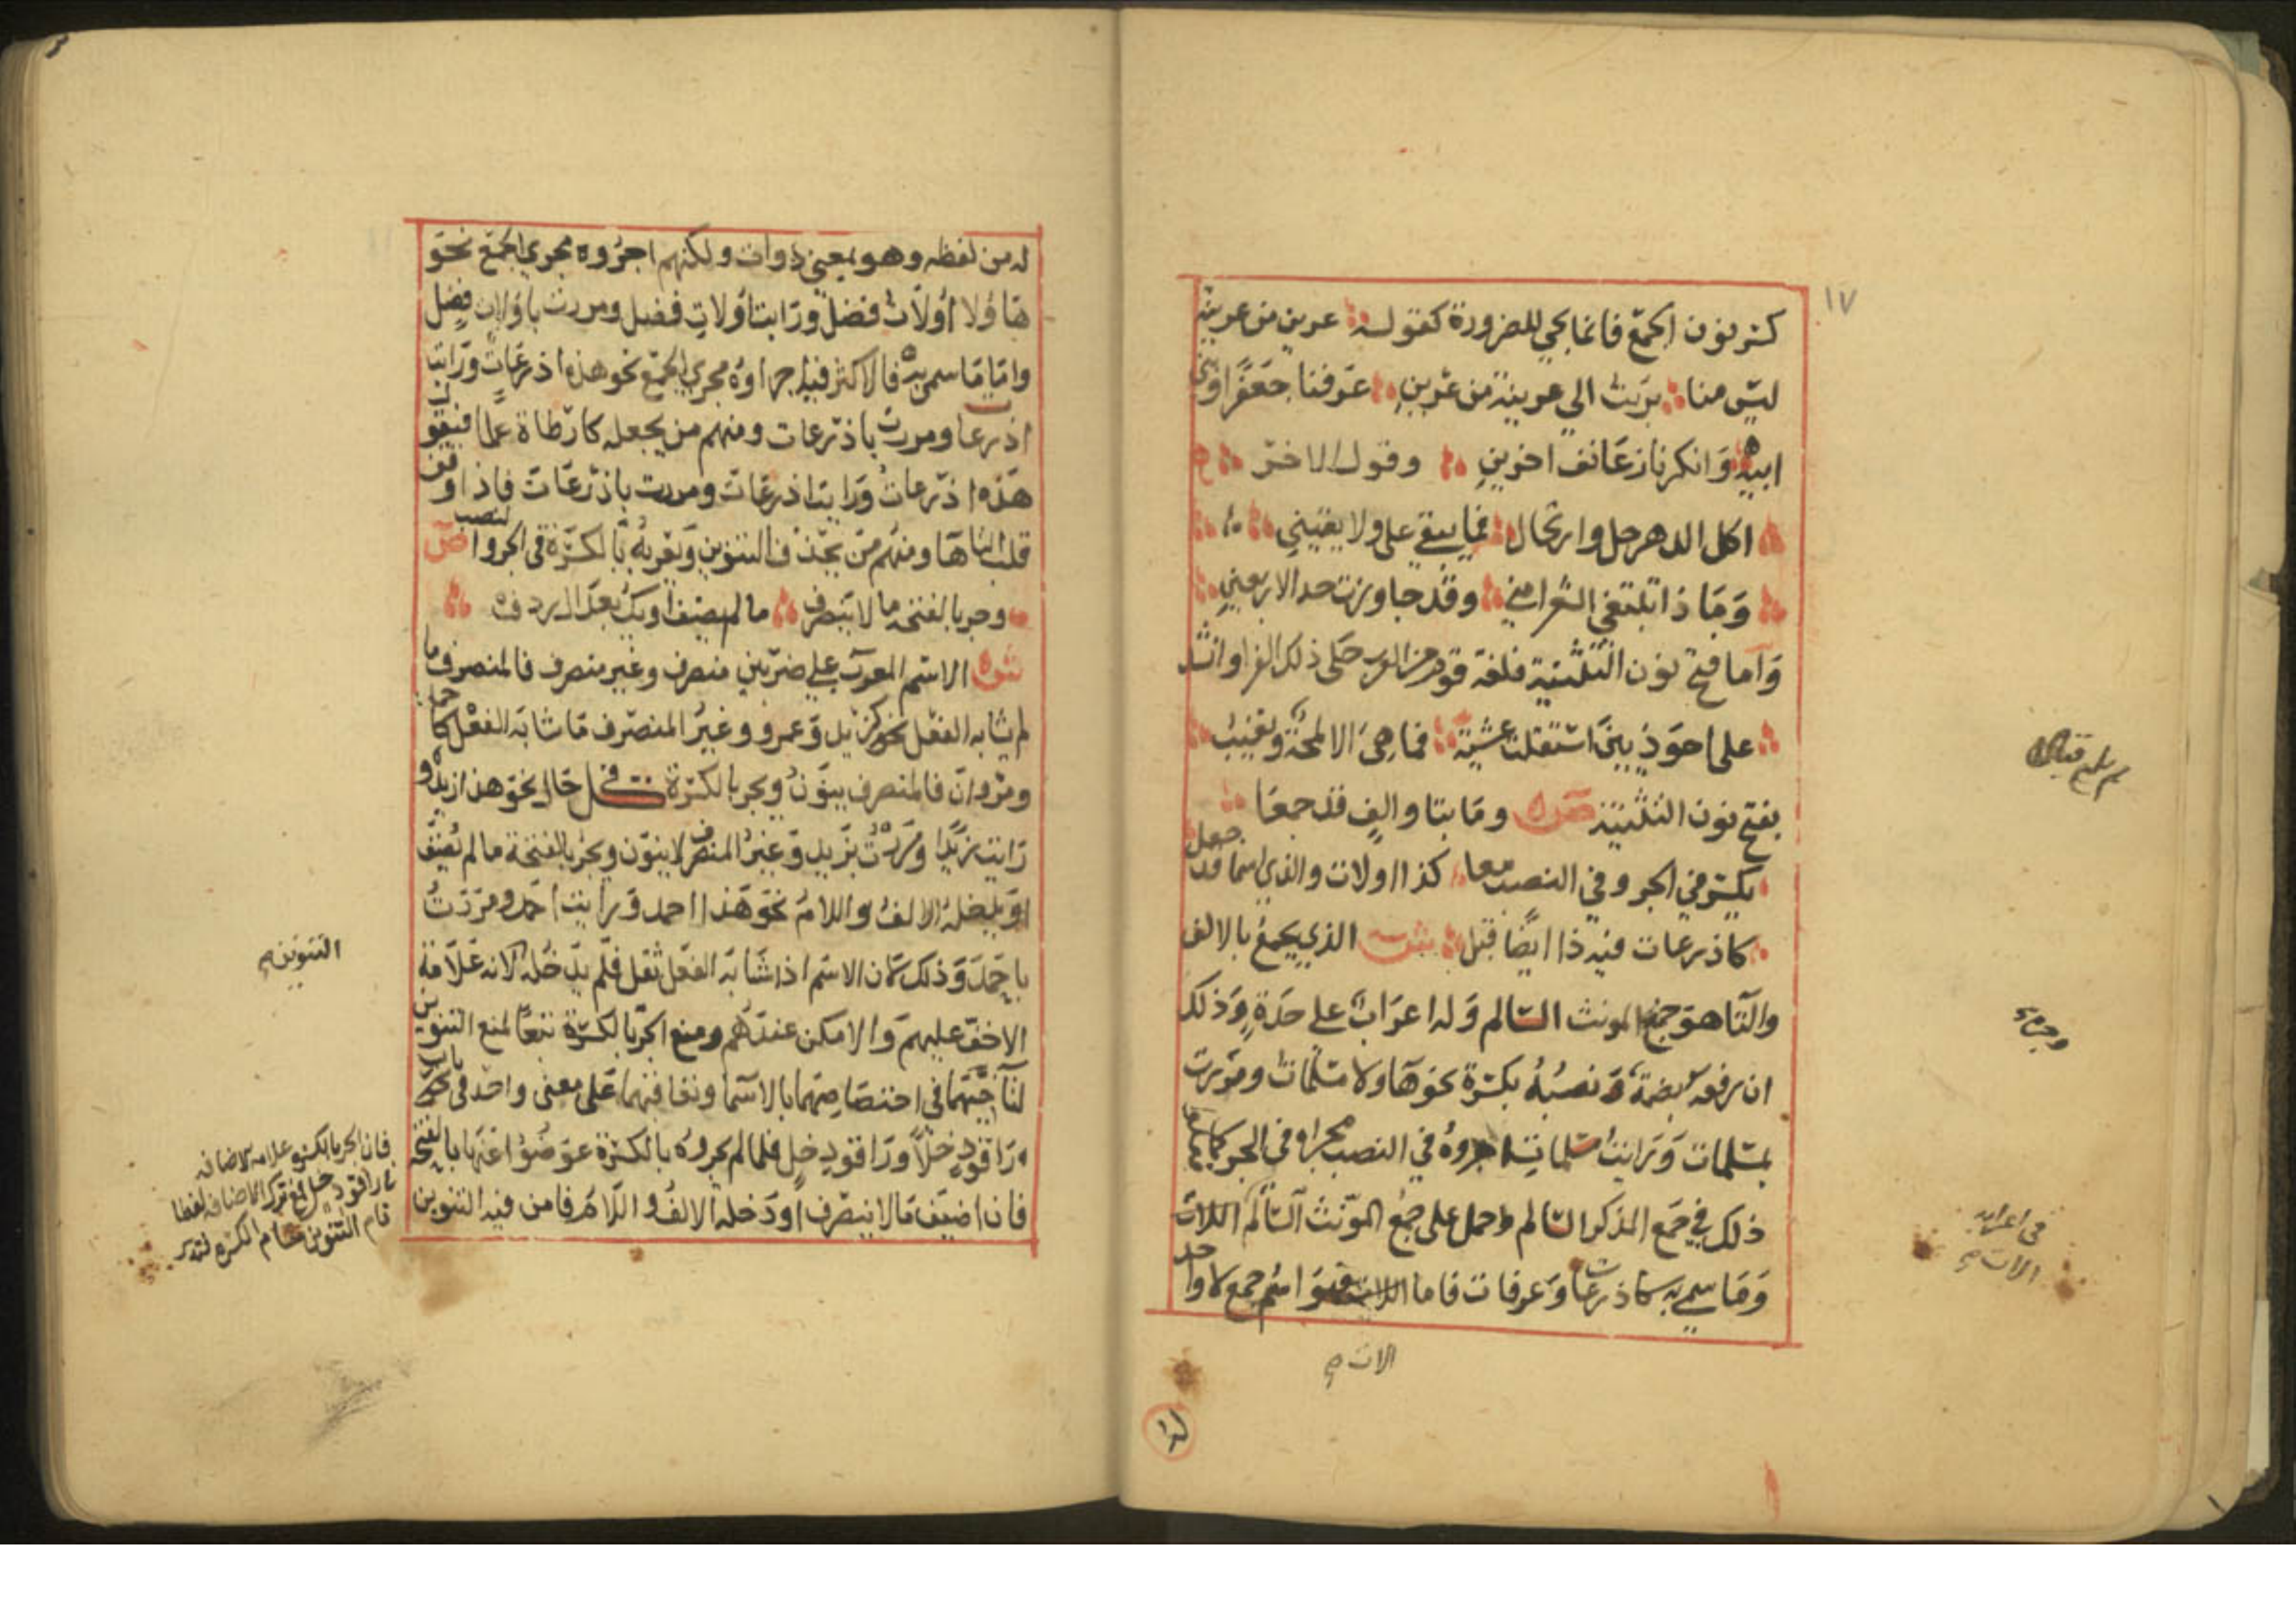 ١٧
كسر نون الجمع فانما يجي للضرورة كقوله عرين من عرينة
ليس منا برئت الي عرينة من عرين عرفنا جعفرا وبني
ابيه وانكرنا زعانف اخرين وقول الاخر
اكل الدهر حل وارتحال فما يبقي علي ولا يقيني
وماذا تبتغي الشعرا مني وقد جاوزت حد الاربعين
واما فتح نون التثنية فلغة قوم من العرب حكي ذلك الفرا وانشد
علي احوذيين استقلت عشية فما هي الا لمحة وتغيب
بفتح نون التثنية ص وما بتا والف قد جمعا
يكسر في الجر وفي النصب معا كذا اولات والذي اسما قد جعل
كاذرعات فيه ذا ايضا قبل ش الذي يجمع بالالف
والتا هو جمع المونث السالم وله اعراب علي حدة وذلك
ان رفعه بضمة ونصبه بكسرة نحو هاولا مسلمات ومررت
بمسلمات ورايت مسلمات اجروه في النصب مجراه في الجر كما فعلوا
ذلك في جمع المذكر السالم وحمل علي جمع المونث السالم اللات
وما سمي به كاذرعات وعرفات فاما اللات فهو اسم جمع لا واحد
الات
وجره
في اعرابه
الات
له من لفظه وهو بمعني ذوات ولكنهم اجروه مجري الجمع نحو
هاولا اولات فضل ورايت اولات فضل ومررت باولات فضل
واما ما سمي به فالاكثر فيه اجراوه مجري الجمع نحو هذه اذرعات ورايت
اذرعات ومررت باذرعات ومنهم من يجعله كارطاة علما فيقول
هذه اذرعات ورايت اذرعات ومررت باذرعات فاذا وقف
قلب التا ها ومنهم من يحذف التنوين ويعربه بالكسرة في الجر والنصب ص
وجر بالفتحة ما لا ينصرف ما لم يضف او يك بعد ال ردف
ش الاسم المعرب علي ضربين منصرف وغير منصرف فالمنصرف ما
لم يشابه الفعل نحو زيد وعمرو وغير المنصرف ما شابه الفعل كاحمد
ومروان فالمنصرف ينون ويجر بالكسرة في كل حال نحو هذا زيد و
رايت زيدا ومررت بزيد وغير المنصرف لا ينون ويجر بالفتحة ما لم يضف
او يدخله الالف واللام نحو هذا احمد ورايت احمد ومررت
باحمد وذلك لان الاسم اذا شابه الفعل ثقل فلم يدخله لانه علامة
الاخف عليهم والامكن عندهم ومنع الجر بالكسرة تبعا لمنع التنوين
لتاخيهما في اختصاصهما بالاسما وتعاقبهما علي معني واحد في باب
راقود خلا وراقود خل فلما لم يجروه بالكسرة عوضوا عنها بالفتحة
فان اضيف ما لا ينصرف او دخله الالف واللام فامن فيه التنوين
التنوين
فان الجر بالكسر علامه الاضافه
في راقود خل فمع ترك الاضافه لفظا
قام التنوين مقام الكسره